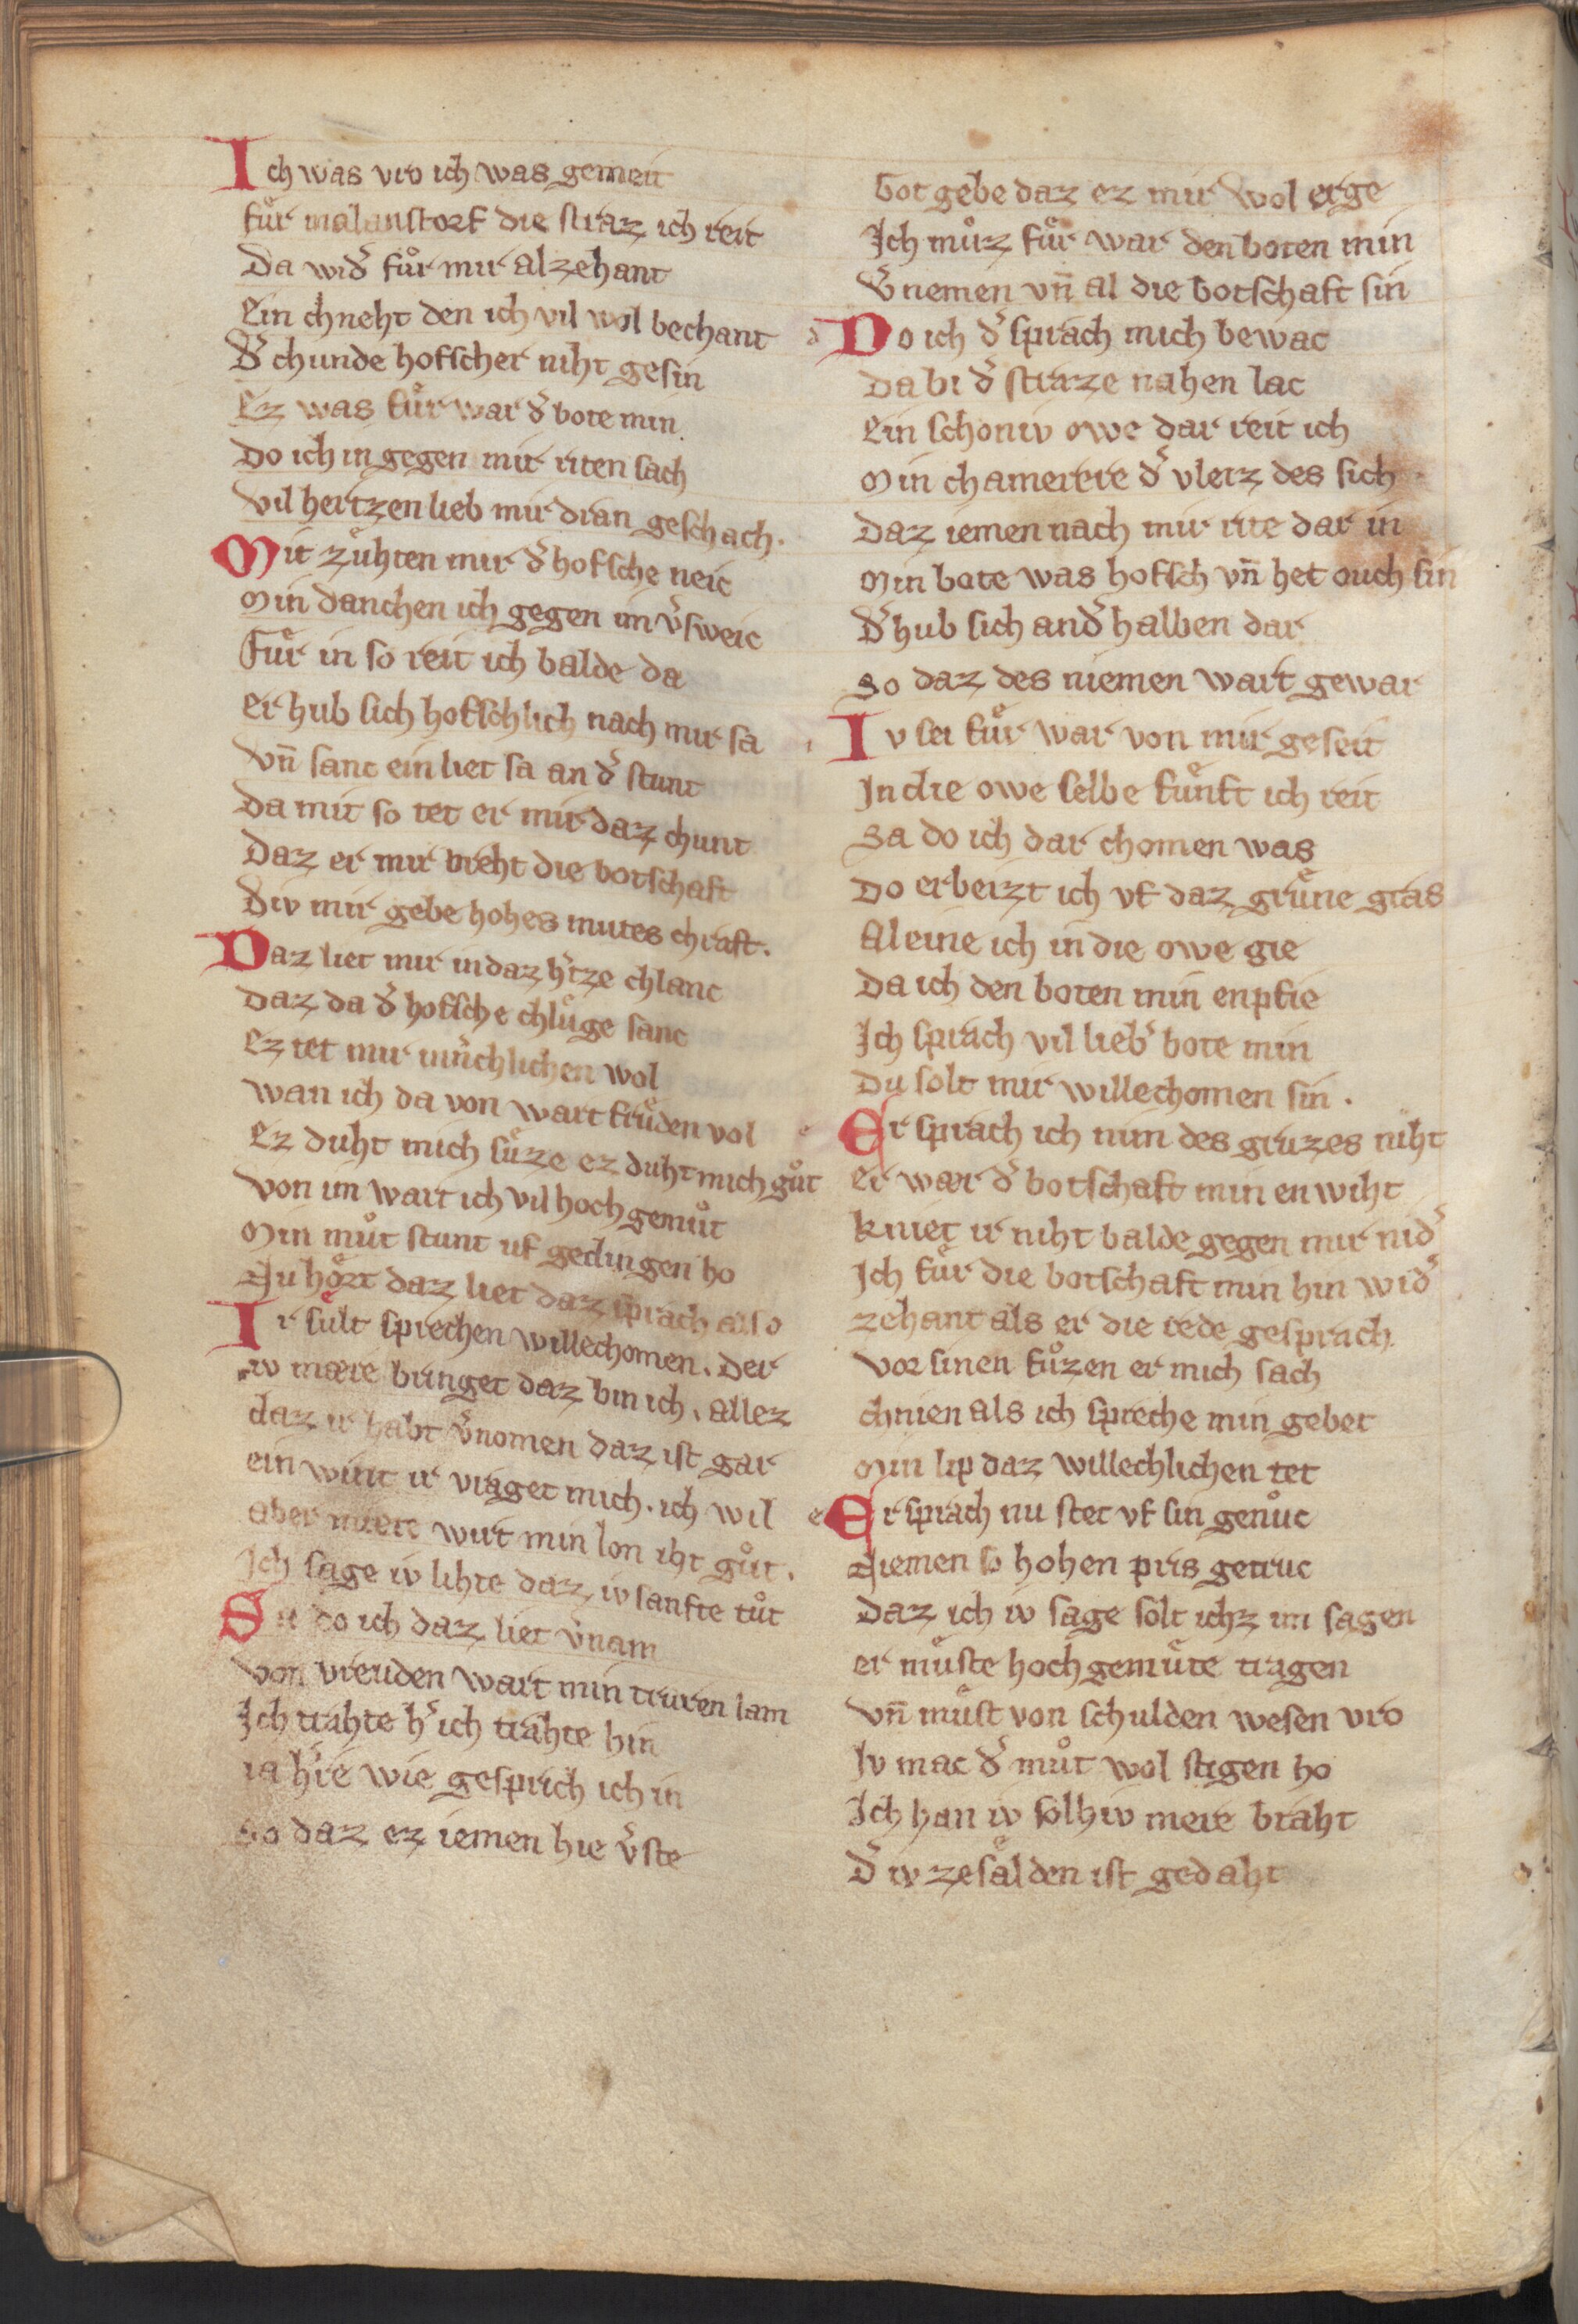 Ich was vro ich was gemeit
fuͤr malanstorf die straz ich reit
Da wid͛ fuͦr mir alzehant
Ein chneht den ich vil wol bechant
D͛ chunde hofscher niht gesin
Ez was fuͤr war d͛ bote min
Do ich in gegen mir riten sach
Vil hertzen lieb mir dran geschach.
Mit zuͤhten mir d͛ hofsche neic
Min danchen ich gegen im v͛sweic
Fuͤr in so reit ich balde da
er hub sich hofschlich nach mir sa
Vn̄ sanc ein liet sa an d͛ stunt
Da mit so tet er mir daz chunt
Daz er mir breht die botschaft
Div mir gebe hohes mutes chraft.
Daz liet mir in daz h͛tze chlanc
Daz da d͛ hofsche chluͦge sanc
Ez tet mir inn͛chlichen wol
wan ich da von wart fruͤden vol
Ez duht mich suͤze ez duht mich guͦt
Von im wart ich vil hoch gemuͦt
Min muͦt stunt uf gedingen ho
Nu hoͤrt daz liet daz sprach also
Ir suͤlt sprechen willechomen. Der
iv mære bringet daz bin ich. allez
daz ir habt v͛nomen daz ist gar
ein wint ir vraget mich. ich wil
aber miete wirt min lon iht guͦt.
Ich sage iv lihte daz iv sanfte tuͦt
Sa do ich daz liet v͛nam
von vreuden wart min truren lam
Ich trahte h͛ ich trahte hin
ia h͛re wie gesprich ich in
So daz ez iemen hie v͛ste
Got gebe daz ez mir wol erge
Ich muͦz fuͤr war den boten min
V͛nemen vn̄ al die botschaft sin
d Do ich d͛ sprach mich bewac
Da bi d͛ straze nahen lac
Ein schoniv owe dar reit ich
Min chamerere d͛ vleiz des sich
Daz iemen nach mir rite dar in
Min bote was hofsch vn̄ het ouch sin
D͛ hub sich and͛halben dar
So daz des niemen wart gewar
i Iv sei fuͤr war von mir geseit
In die owe selbe fuͤnft ich reit
Sa do ich dar chomen was
Do erbeizt ich vf daz gruͤne gras
Aleine ich in die owe gie
Da ich den boten min enpfie
Ich sprach vil lieb͛ bote min
Du solt mir willechomen sin.
e Er sprach ich nim des gruzes niht
er wær d͛ botschaft min enwiht
kniet ir niht balde gegen mir nid͛
Ich fuͤr die botschaft min hin wid͛
zehant als er die rede gesprach
vor sinen fuͤzen er mich sach
chnien als ich spreche min gebet
Min lip daz willechlichen tet
e Er sprach nu stet vf sin genuͦc
Niemen so hohen pris getruc
Daz ich iv sage solt ichz im sagen
er muͤste hochgemuͤte tragen
vn̄ muͤst von schulden wesen vro
Iv mac d͛ muͦt wol stigen ho
Ich han iv solhiv mere braht
d͛ iv ze saͤlden ist gedaht